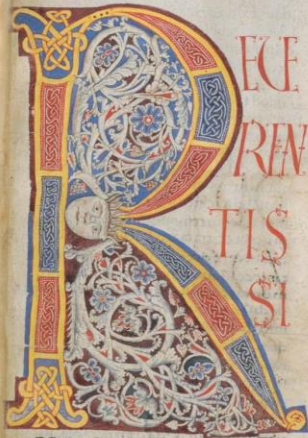 R EVE
REN
TIS
SI